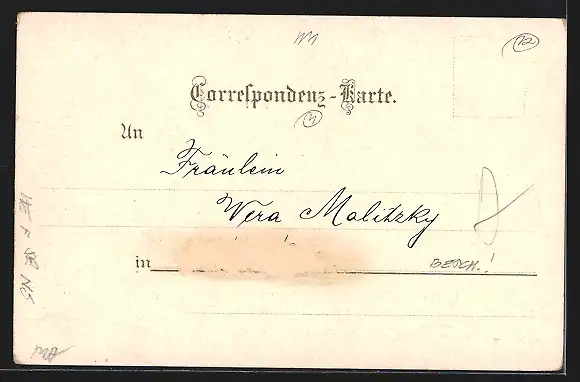 12
Correspondenz-Karte.
An
Fräulein
Vera Malitzky
in
BESCH.!